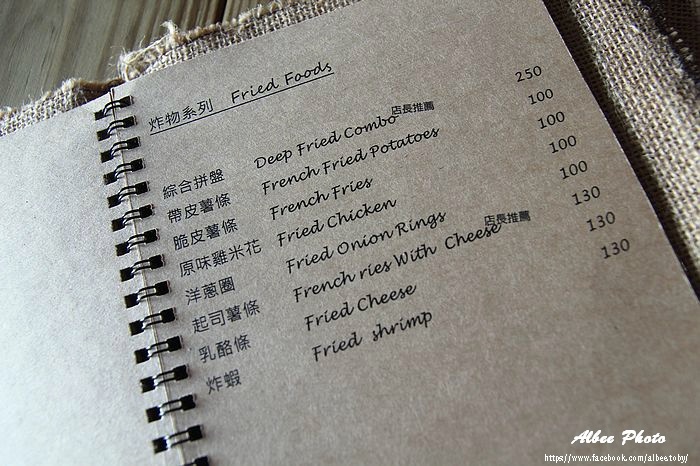 炸物系列 Fried Foods
綜合拼盤 Deep Fried Combo 店長推薦 250
帶皮薯條 French Fried Potatoes 100
脆皮薯條 French Fries 100
原味雞米花 Fried Chicken 100
洋蔥圈 Fried Onion Rings 100
起司薯條 French ries With Cheese 店長推薦 130
乳酪條 Fried Cheese 130
炸蝦 Fried shrimp 130
Albee Photo
https://www.facebook.com/albeetoby/